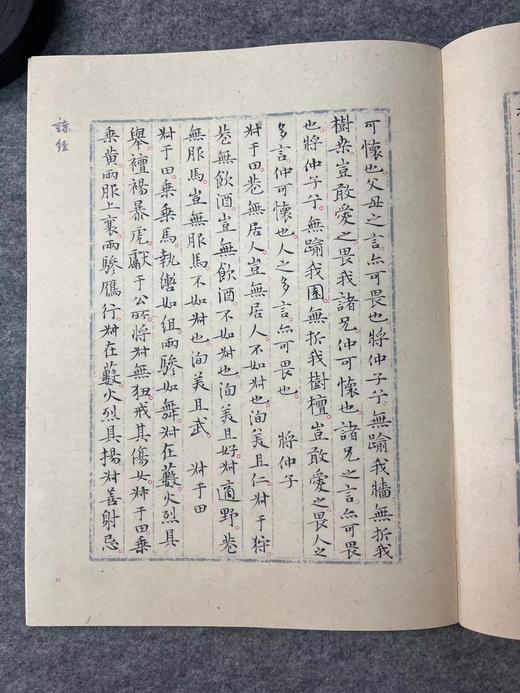 可懷也父母之言亦可畏也將仲子兮無踰我牆無折我
樹桑豈敢愛之畏我諸兄仲可懷也諸兄之言亦可畏
也將仲子兮無踰我園無折我樹檀豈敢愛之畏人之
多言仲可懷也人之多言亦可畏也 將仲子
叔于田巷無居人豈無居人不如叔也洵美且仁叔于狩
巷無飲酒豈無飲酒不如叔也洵美且好叔適野巷
無服馬豈無服馬不如叔也洵美且武 叔于田
叔于田乘乘馬執轡如組兩驂如舞叔在藪火烈具
舉襢裼暴虎獻于公所將叔無狃戒其傷女叔于田乘
乘黃兩服上襄兩驂鴈行叔在藪火烈具揚叔善射忌
詩經